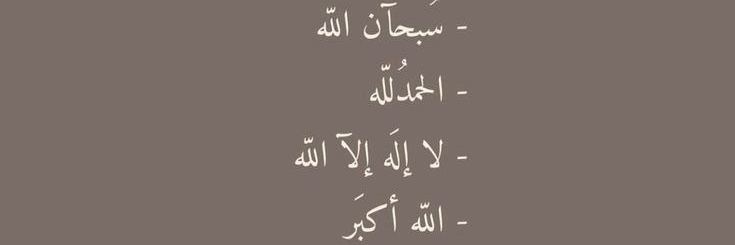 - سَبحآن اللّه
- الحمدُللّه
- لا إلَه إلآ اللّه
- اللّه أكبَر